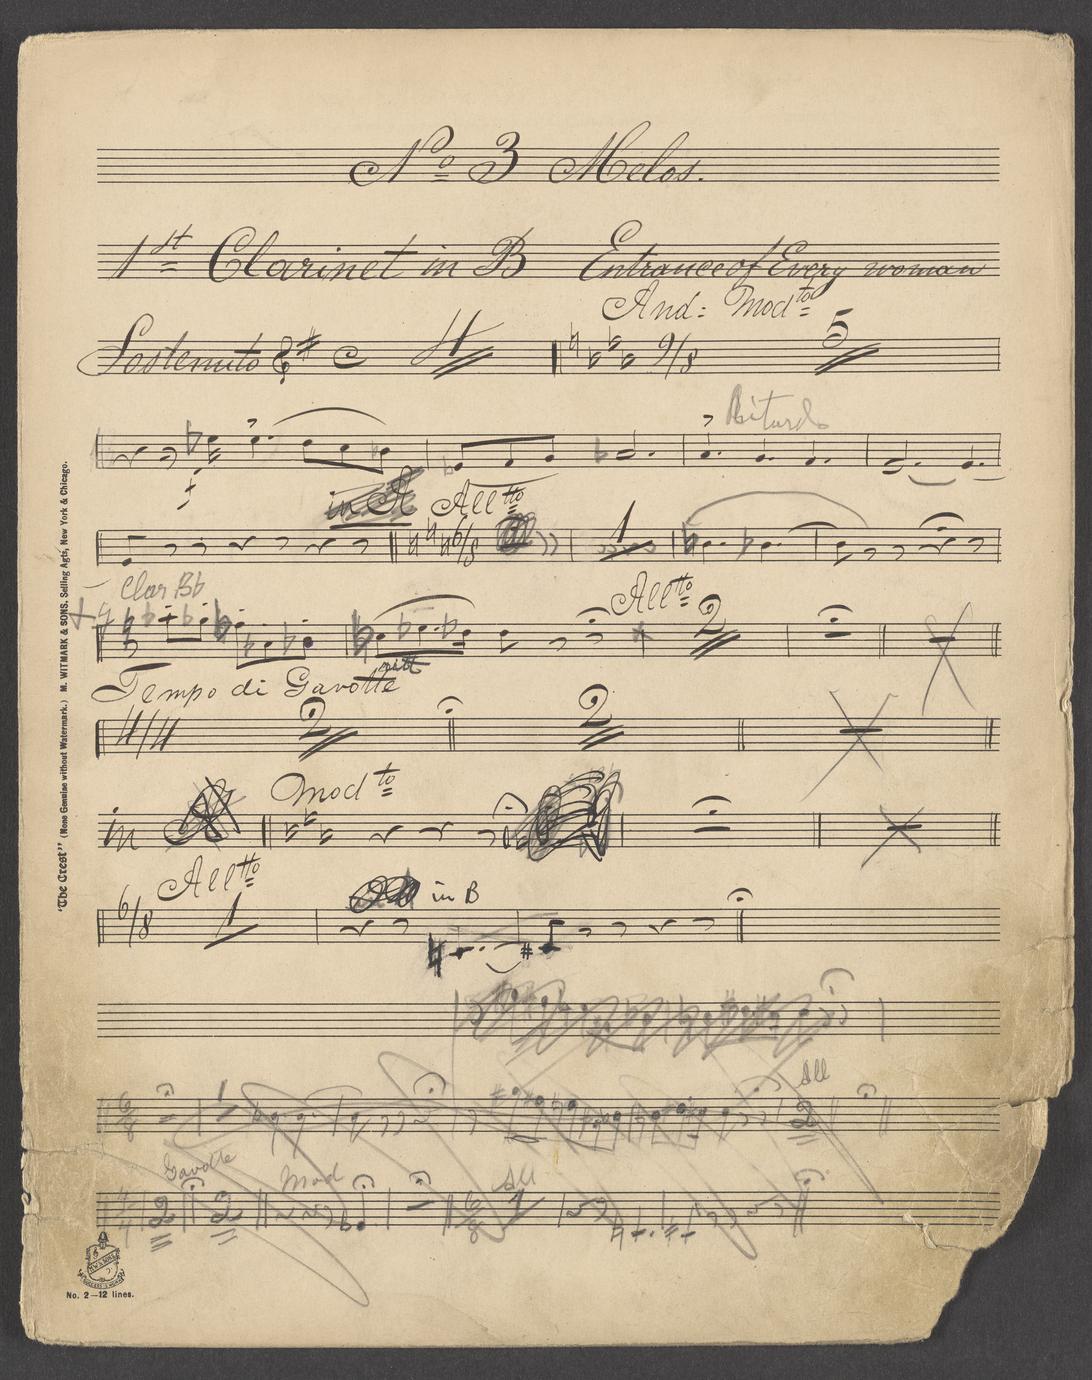 No 3 Melos.
1st Clarinet in B Entrance of Every woman
And: Modto
Sostenuto C 4 9/8 5
Ritard
in A Alltto
6/8 1
Clar Bb
Alltto
2
Tempo di Gavotte
4/4 2 2
in Modto
Alltto
in B
6/8 1
All
6/8 1 2
Gavotte Mod All
4/4 2 2 6/8 1
"The Crest" (None Genuine without Watermark.) M. WITMARK & SONS. Selling Agts, New York & Chicago.
No. 2—12 lines.